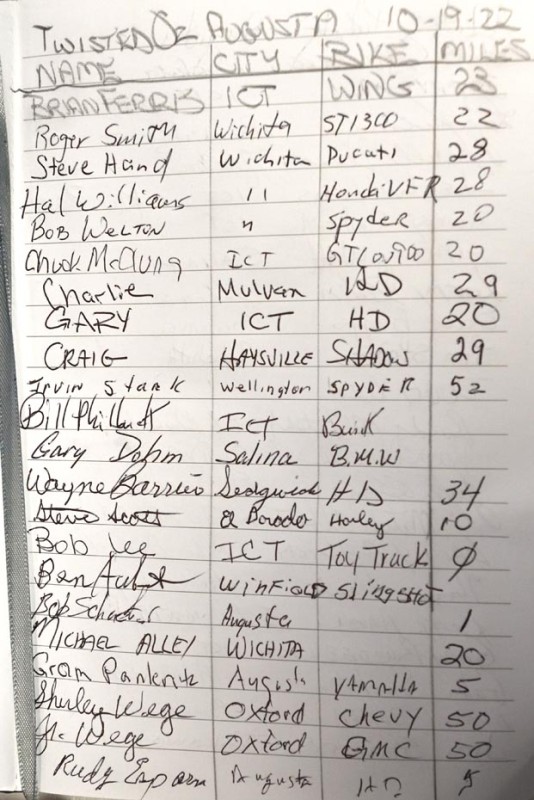 TWISTED OZ AUGUSTA 10-19-22
NAME CITY BIKE MILES
BRIAN FERRIS ICT WING 23
Roger Smith Wichita ST1300 22
Steve Hand Wichita Ducati 28
Hal Williams " Honda VFR 28
BOB WELTON " SpydeR 20
Chuck McClung ICT 20
Charlie Mulvan HD 29
GARY ICT HD 20
CRAIG HAYSVILLE SHADOW 29
IRVIN STARK Wellington SPYDER 52
Bill ICT Buick
Gary Dohm Salina B.M.W
Wayne Barrier Sedgwick HD 34
Steve Scott El Dorado Harley 10
Bob Lee ICT Toy Truck 0
Ben WINFIELD SLINGSHOT
Bob Augusta 1
MICHAEL ALLEY WICHITA 20
Augusta YAMAHA 5
Shirley Wege Oxford Chevy 50
Jr. Wege Oxford GMC 50
Rudy Augusta HD 5